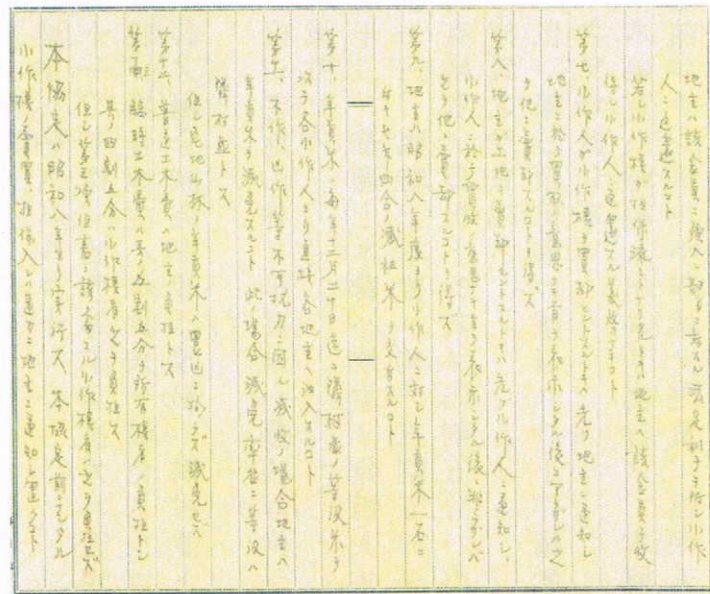 地主ハ該金員ニ種入ニ対スル法定利子ヲ附シ小作
人ニ返還スルコト
若シ小作権ガ担保流トナリタルトキハ地主ハ該金員ヲ収
得シ小作人ニ返還スル義務ナキコト
第七、小作人ガ小作権ヲ買却セントスルトキハ先ヅ地主ニ通知シ
地主ニ於テ買取ノ意思ナキ旨ヲ表示シタル後ニアラザレバ之
ヲ他ニ売却スルコトヲ得ズ
第八、地主ガ土地ヲ賣却セントスルトキハ先ヅ小作人ニ通知シ、
小作人ニ於テ買収ノ意思ナキ旨ヲ表示シタル後ニ非ザレバ
之ヲ他ニ賣却スルコトヲ得ズ
第九、地主ハ昭和八年度ヨリ小作人ニ対シ年貢米一石ニ
付キ 四合ノ減租米ヲ交付スルコト
第十、年貢米ハ毎年十二月二十日迄ニ隣村並ノ等級米ヲ
以テ各小作人ヨリ直接各地主ヘ納入スルコト
第十一、不作、凶作等不可抗力ニ因ル減収ノ場合地主ハ
年貢米ヲ減免スルコト 此ノ場合減免率並ニ等級ハ
隣村並トス
但シ宅地山林ノ年貢米ハ豊凶ニ拘ラズ減免セズ
第十二、普通土木費ハ地主ノ負担トス
第十三、臨時土木費ハ其ノ五割五分ヲ所有権者ノ負担トシ
其ノ四割五分ハ小作権者之ヲ負担ス
但シ第五項但書ニ該当スル小作権者ハ之ヲ負担セズ
本協定ハ昭和八年ヨリ実行ス 本協定前ニ於ケル
小作権ノ賣買、担保入レハ速カニ地主ニ通知シ置クコト